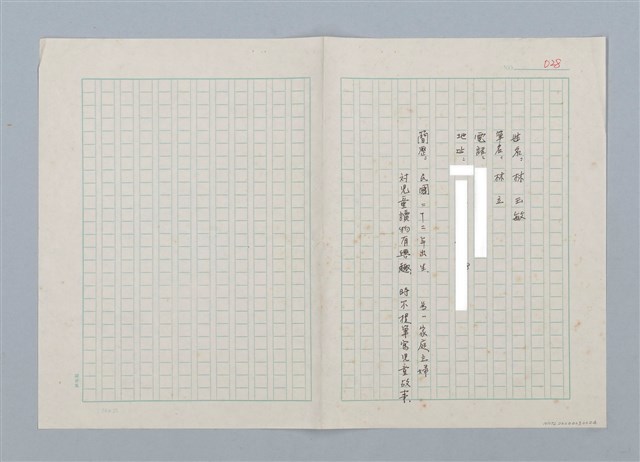 028
姓名：林玉敏
筆名：林立
電話：
地址：
簡歷：民國二十二年出生 為一家庭主婦
對兒童讀物有興趣，時不提筆寫兒童故事。